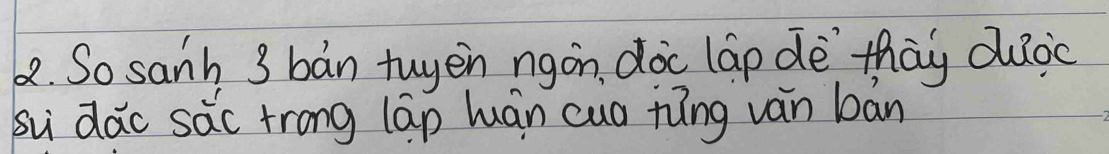 2. So sánh 3 bản tuyên ngôn độc lập để thấy được
sự đặc sắc trong lập luận của từng văn bản